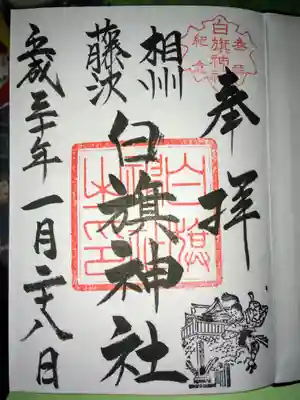 奉拝
参拝
白旗神社
紀念
相州
藤沢
白旗神社
平成三十年一月二十八日